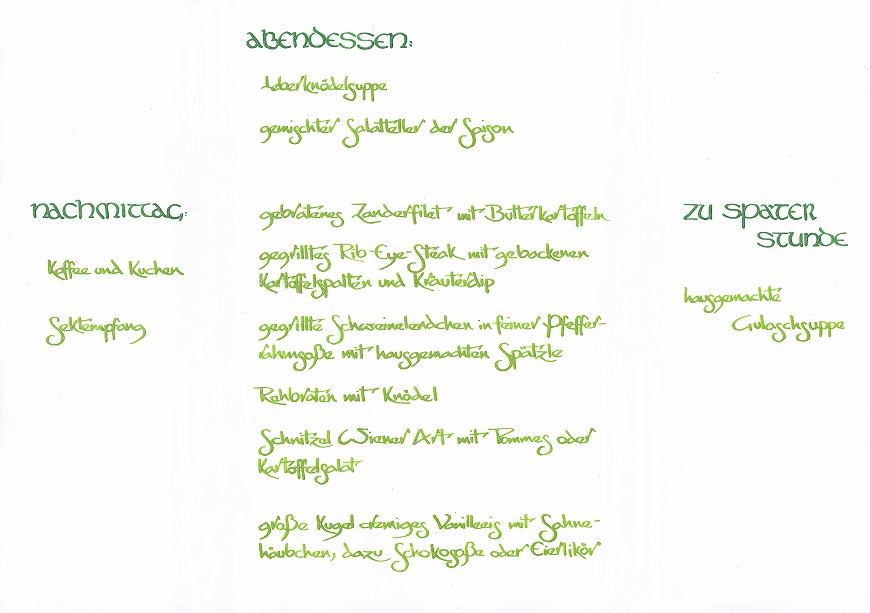 NACHMITTAG:
Kaffee und Kuchen
Sektempfang
ABENDESSEN:
Leberknödelsuppe
gemischter Salatteller der Saison
gebratenes Zanderfilet mit Butterkartoffeln
gegrilltes Rib-Eye-Steak mit gebackenen
Kartoffelspalten und Kräuterdip
gegrillte Schweinelendchen in feiner Pfeffer-
rahmsoße mit hausgemachten Spätzle
Rehbraten mit Knödel
Schnitzel Wiener Art mit Pommes oder
Kartoffelsalat
große Kugel cremiges Vanilleeis mit Sahne-
häubchen, dazu Schokosoße oder Eierlikör
ZU SPÄTER
STUNDE
hausgemachte
Gulaschsuppe